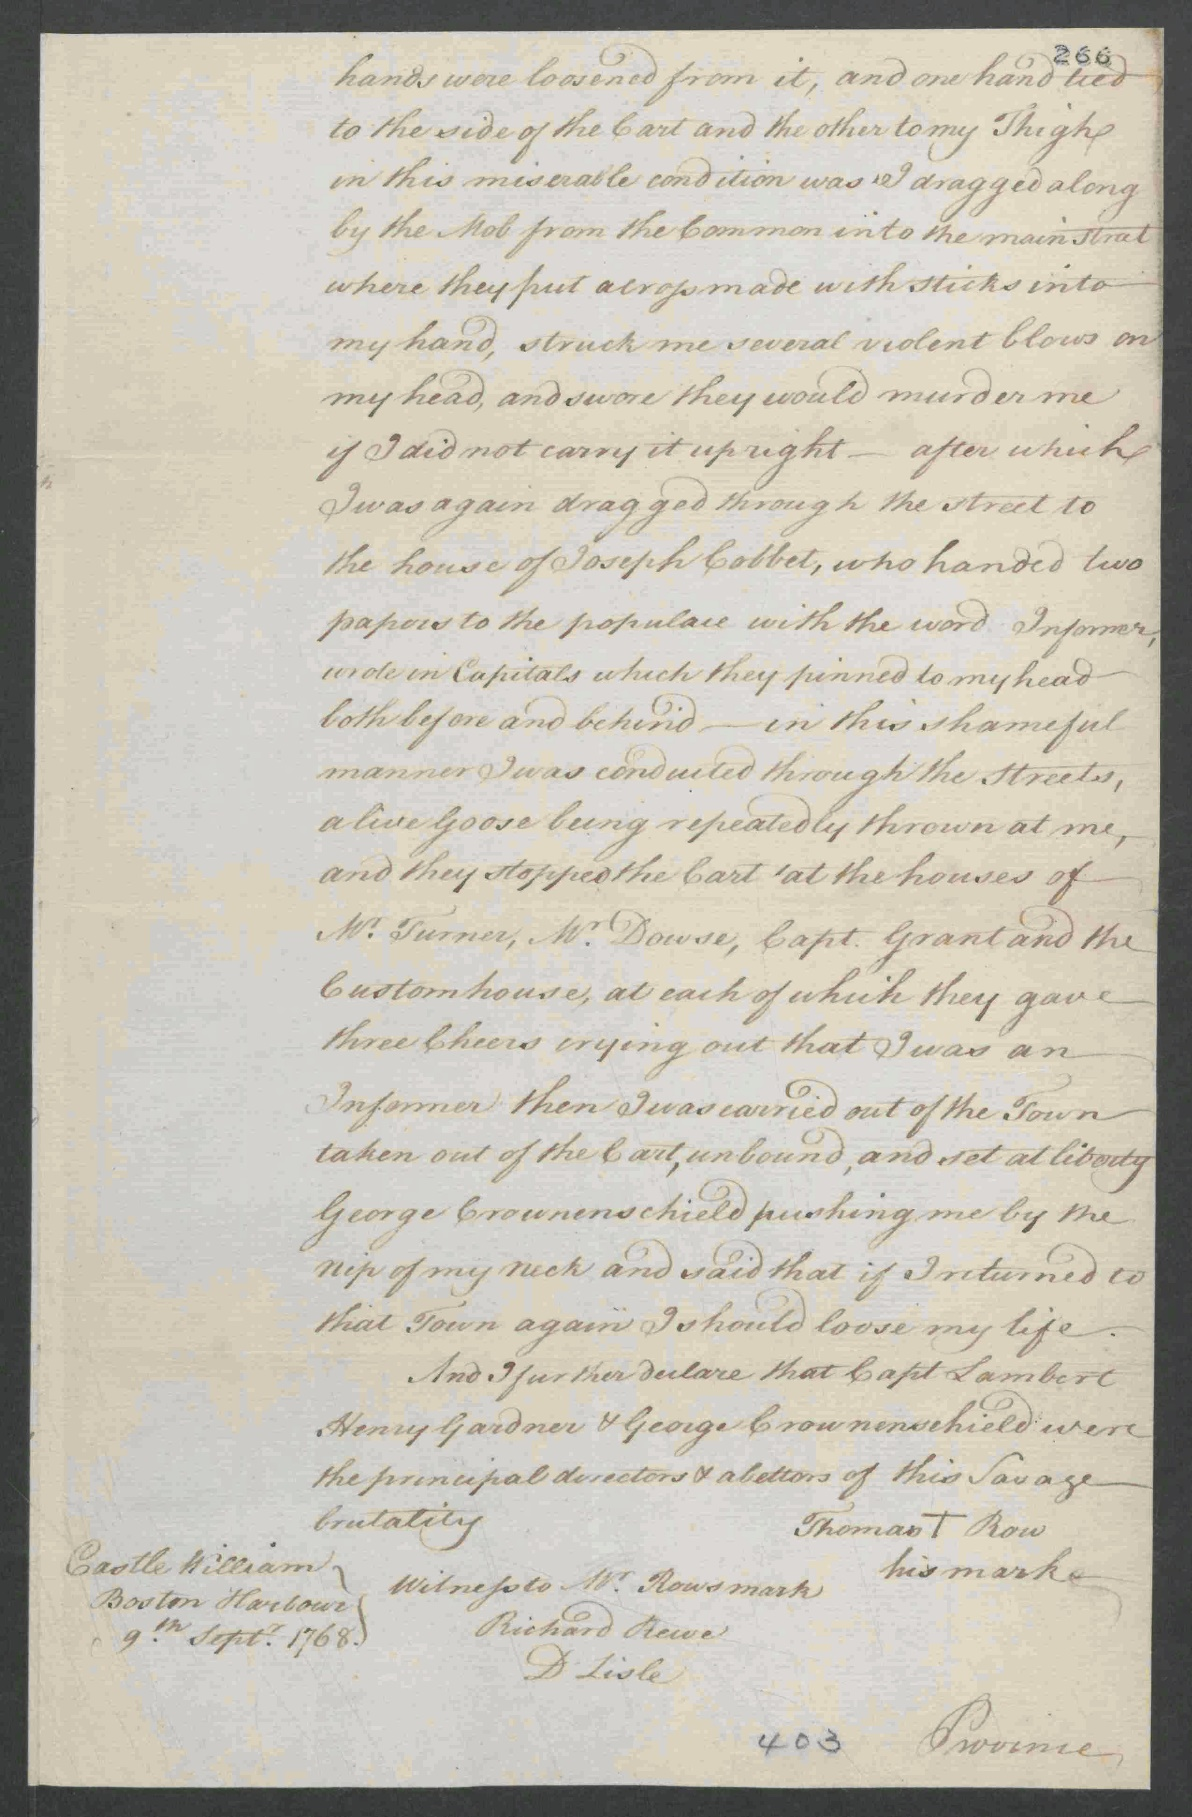 266
hands were loosened from it, and one hand tied
to the side of the Cart and the other to my Thigh
in this miserable condition was I dragged along
by the Mob from the Common into the main Street
where they put a cross made with sticks into
my hand, struck me several violent blows on
my head, and swore they would murder me
if I did not carry it upright — after which
I was again dragged through the street to
the house of Joseph Cobbet, who handed two
papers to the populace with the word Informer,
wrote in Capitals which they pinned to my head
both before and behind — in this shameful
manner I was conducted through the Streets,
a live Goose being repeatedly thrown at me,
and they stopped the Cart at the houses of
Mr. Turner, Mr. Dowse, Capt. Grant and the
Customhouse, at each of which they gave
three Cheers crying out that I was an
Informer then I was carried out of the Town
taken out of the Cart, unbound, and set at liberty
George Crownenschield pushing me by the
nip of my neck and said that if I returned to
that Town again I should loose my life.
And I further declare that Capt Lambert
Henry Gardner & George Crownenschield were
the principal directors & abettors of this Savage
brutality
Thomas † Row
his mark
Castle William
Boston Harbour
9.th Sept.r 1768.
Witness to Mr. Rows mark
Richard Reeve
D Lisle
403
Province